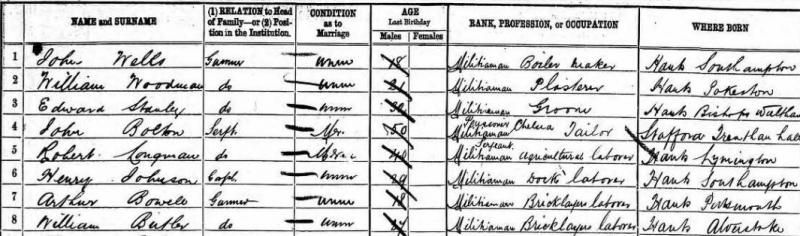 NAME and SURNAME
(1) RELATION to Head of Family—or (2) Position in the Institution.
CONDITION as to Marriage
AGE Last Birthday
Males Females
RANK, PROFESSION, or OCCUPATION
WHERE BORN
1 John Wells Gunner Unm 18 Militiaman Boiler Maker Hants Southampton
2 William Woodman do Unm 21 Militiaman Plasterer Hants
3 Edward Stanley do Unm 20 Militiaman Groom Hants Bishops Waltham
4 John Bolton Sergt Mr. 50 Pensioner Chelsea Militiaman Sergeant Tailor Stafford Trentham
5 Robert Longman do Militiaman Agricultural laborer Hants Lymington
6 Henry Johnson Corpl Unm Militiaman Dock laborer Hants Southampton
7 Arthur Bowell Gunner Unm 18 Militiaman Bricklayers laborer Hants Portsmouth
8 William Butler do Unm Militiaman Bricklayers laborer Hants Alverstoke